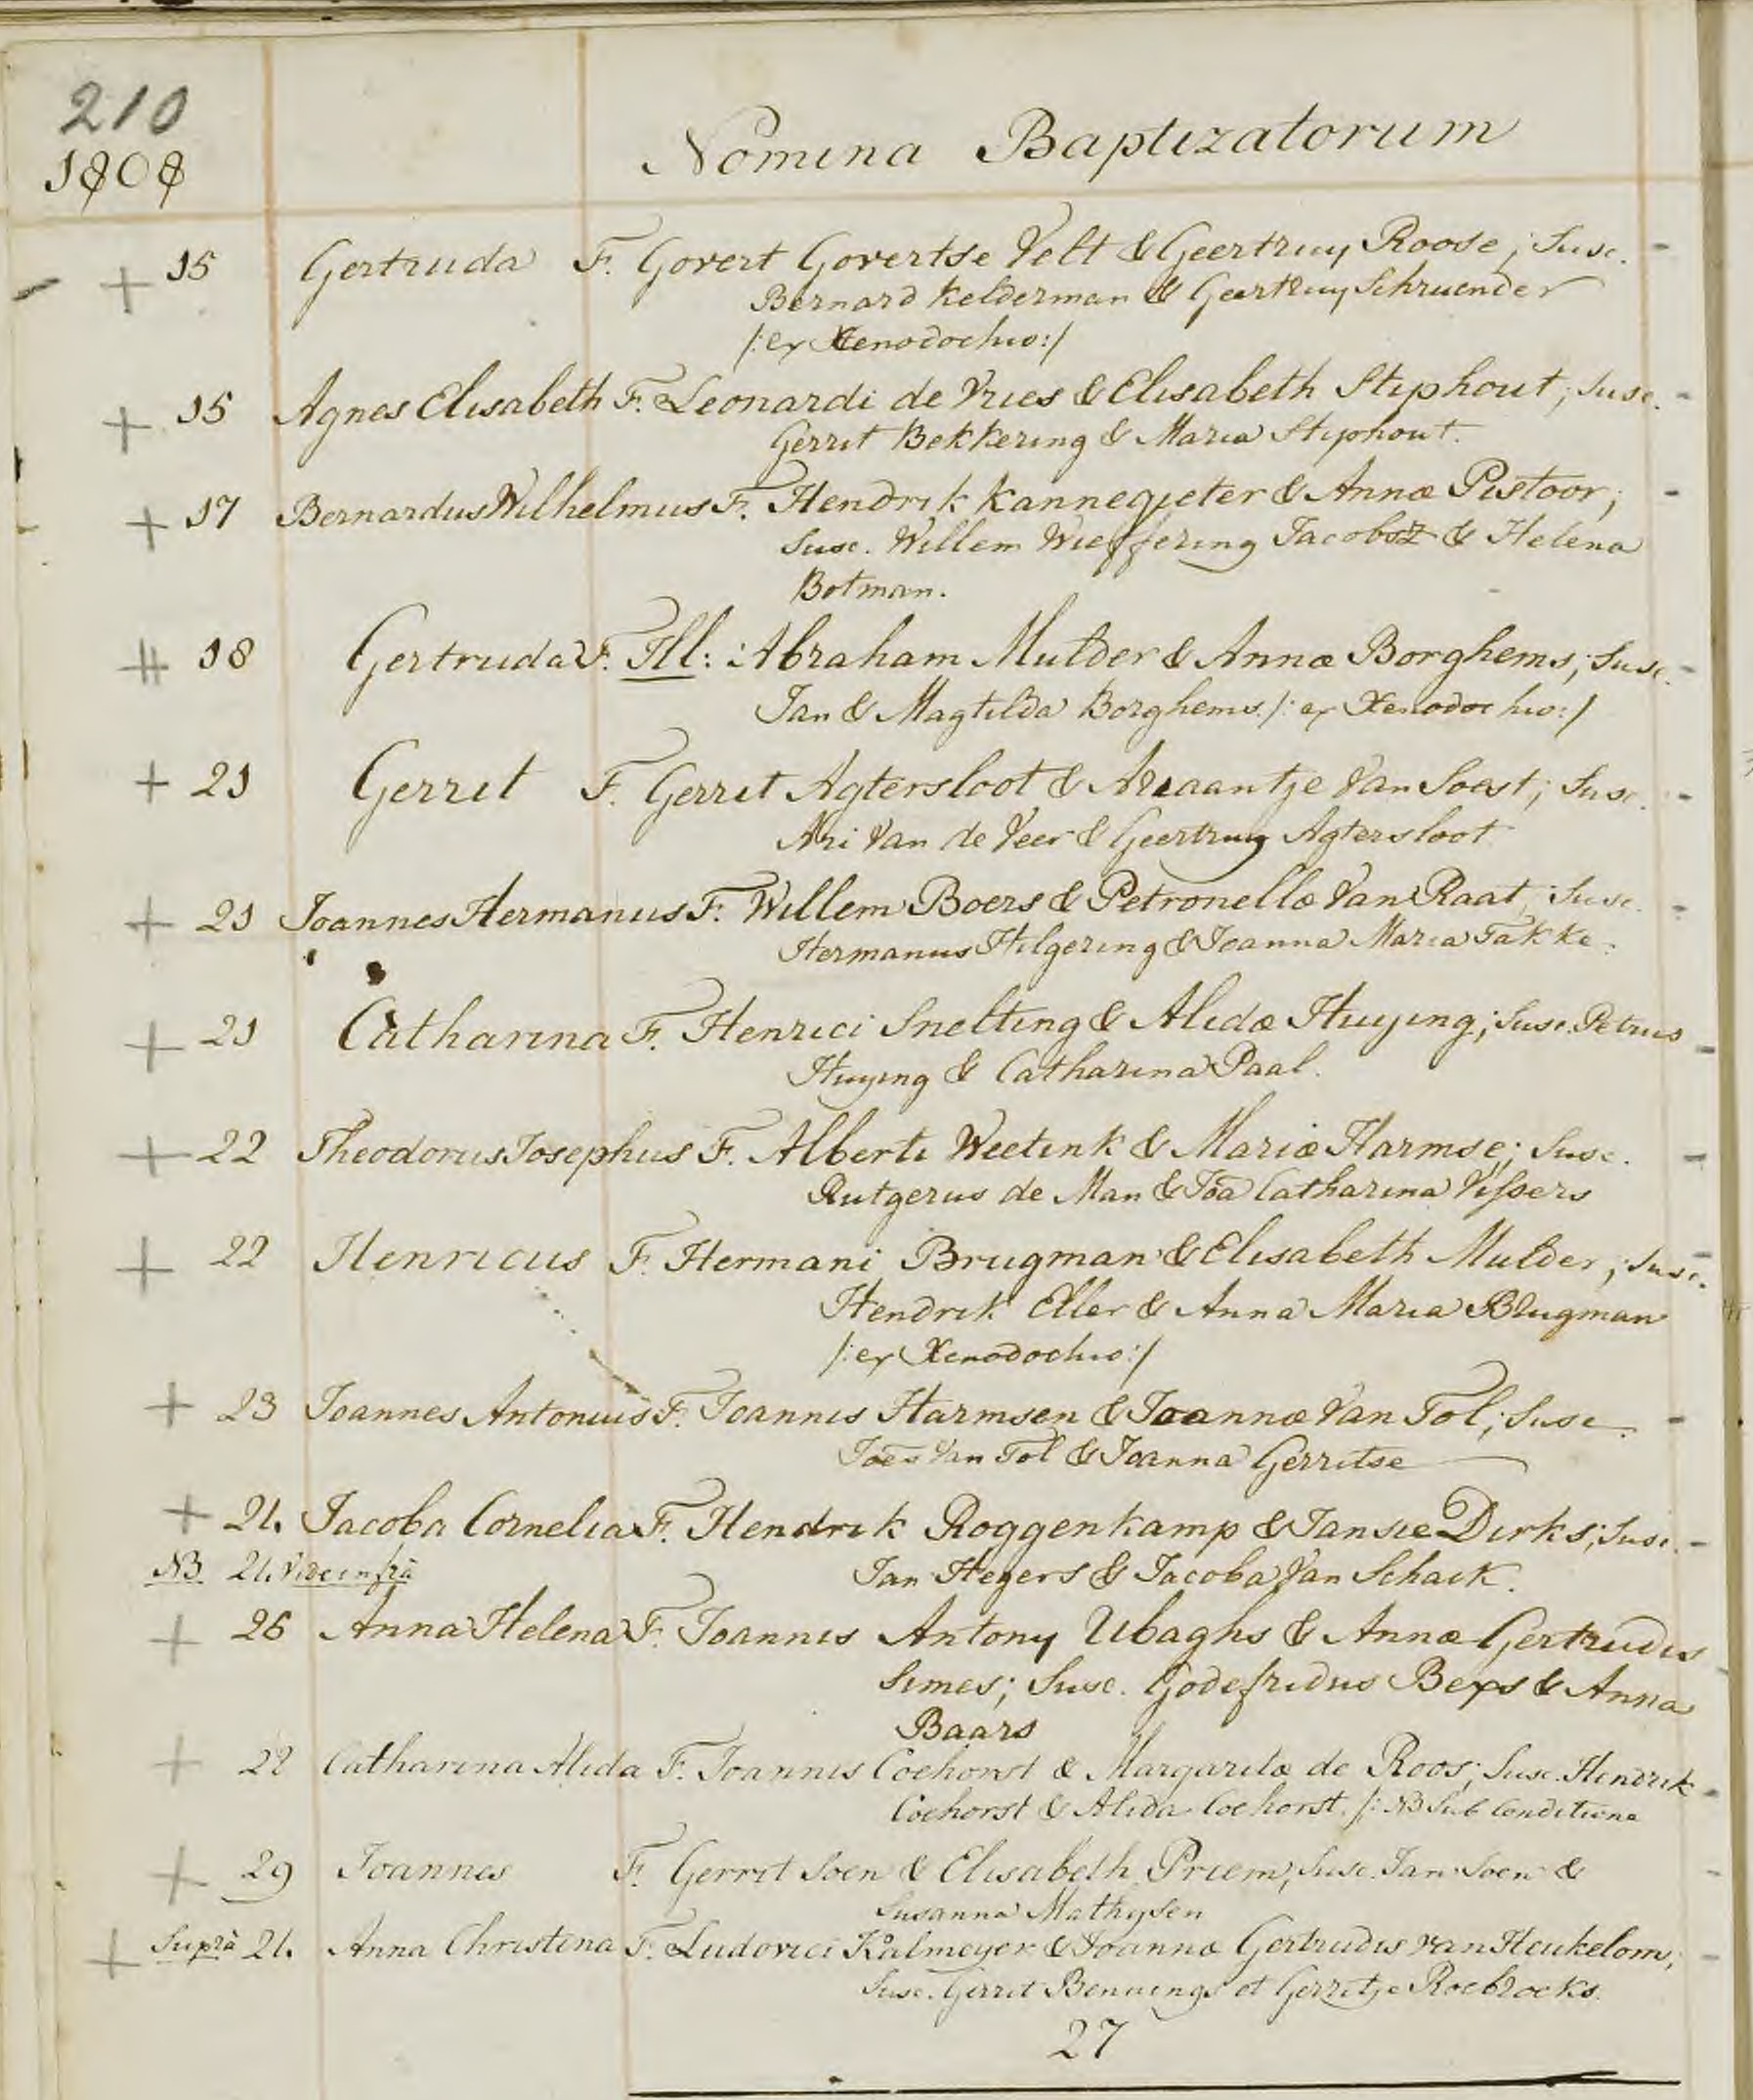 210
1808
Nomina Baptizatorum
+ 15 Gertruda F. Govert Govertse Velt & Geertruy Roose; Susc. -
Bernard Kelderman & Geertruy Schruender
/: ex Xenodochio:/
+ 15 Agnes Elisabeth F. Leonardi de Vries & Elisabeth Styphout; Susc. -
Gerrit Bekkering & Maria Styphout.
+ 17 Bernardus Wilhelmus F. Hendrik Kannegieter & Annæ Pistoor; -
Susc. Willem Wieffering Jacobsz & Helena
Botman.
++ 18 Gertruda F. Ill: Abraham Mulder & Annæ Borghems; Susc. -
Jan & Magtilda Borghems /: ex Xenodochio:/
+ 21 Gerrit F. Gerret Agtersloot & Ariaantje Van Soest; Susc. -
Ari Van de Veer & Geertruy Agtersloot
+ 21 Joannes Hermanus F. Willem Boers & Petronellæ Van Raat; Susc. -
Hermanus Hilgering & Joanna Maria Takke.
+ 21 Catharina F. Henrici Snelting & Alidæ Huying; Susc. Petrus -
Huying & Catharina Paal.
+ 22 Theodorus Josephus F. Alberti Weetink & Mariæ Harmse; Susc. -
Rutgerus de Man & Joa Catharina Vissers
+ 22 Henricus F. Hermani Brugman & Elisabeth Mulder; Susc. -
Hendrik Eller & Anna Maria Blugman
/: ex Xenodochio:/
+ 23 Joannes Antonius F. Joannis Harmsen & Joannæ Van Tol; Susc. -
Joēs Van Tol & Joanna Gerritse
+ 24. Jacoba Cornelia F. Hendrik Roggenkamp & Jansie Dirks; Susc. -
NB 24. Vide infrà Jan Hegers & Jacoba Van Schaik.
+ 26 Anna Helena F. Joannis Antony Ubaghs & Annæ Gertrudis
Simes; Susc. Godefridus Bexs & Anna
Baars
+ 28 Catharina Alida F. Joannis Coehorst & Margaritæ de Roos; Susc. Hendrik -
Coehorst & Alida Coehorst. /: NB Sub Conditione
+ 29 Joannes F. Gerrit Soen & Elisabeth Priem; Susc. Jan Soen & -
Susanna Mathysen
+ Suprà 24. Anna Christina F. Ludovici Kalmeyer & Joannæ Gertrudis van Heukelom; -
Susc. Gerrit Bennings et Gerritje Roebroeks.
27